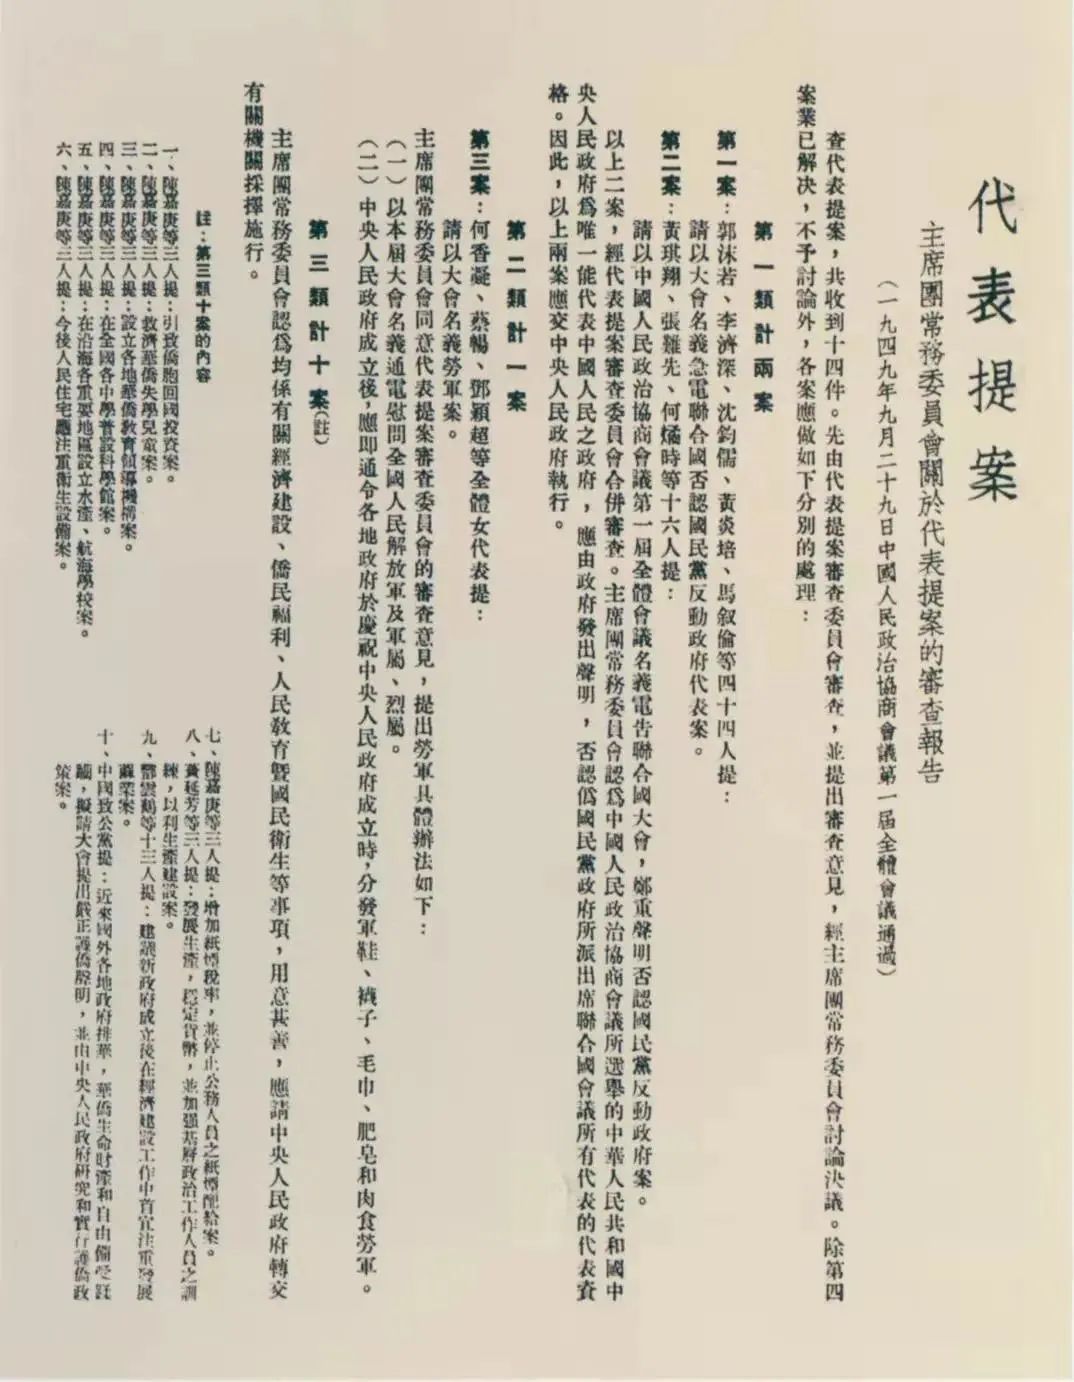 代表提案
主席團常務委員會關於代表提案的審查報告
（一九四九年九月二十九日中國人民政治協商會議第一屆全體會議通過）
查代表提案，共收到十四件。先由代表提案審查委員會審查，並提出審查意見，經主席團常務委員會討論決議。除第四
案業已解决，不予討論外，各案應做如下分別的處理：
第一類計兩案
第一案：郭沫若、李濟深、沈鈞儒、黃炎培、馬叙倫等四十四人提：
請以大會名義急電聯合國否認國民黨反動政府代表案。
第二案：黃琪翔、張難先、何燏時等十六人提：
請以中國人民政治協商會議第一屆全體會議名義電告聯合國大會，鄭重聲明否認國民黨反動政府案。
以上二案，經代表提案審查委員會合併審查。主席團常務委員會認爲中國人民政治協商會議所選舉的中華人民共和國中
央人民政府爲唯一能代表中國人民之政府，應由政府發出聲明，否認僞國民黨政府所派出席聯合國會議所有代表的代表資
格。因此，以上兩案應交中央人民政府執行。
第二類計一案
第三案：何香凝、蔡暢、鄧穎超等全體女代表提：
請以大會名義勞軍案。
主席團常務委員會同意代表提案審查委員會的審查意見，提出勞軍具體辦法如下：
（一）以本屆大會名義通電慰問全國人民解放軍及軍屬、烈屬。
（二）中央人民政府成立後，應即通令各地政府於慶祝中央人民政府成立時，分發軍鞋、襪子、毛巾、肥皂和肉食勞軍。
第三類計十案（註）
主席團常務委員會認爲均係有關經濟建設、僑民福利、人民教育暨國民衛生等事項，用意甚善，應請中央人民政府轉交
有關機關採擇施行。
註：第三類十案的內容
一、陳嘉庚等三人提：引致僑胞回國投資案。
二、陳嘉庚等三人提：救濟華僑失學兒童案。
三、陳嘉庚等三人提：設立各地華僑教育領導機構案。
四、陳嘉庚等三人提：在全國各中學普設科學館案。
五、陳嘉庚等三人提：在沿海各重要地區設立水產、航海學校案。
六、陳嘉庚等三人提：今後人民住宅應注重衛生設備案。
七、陳嘉庚等三人提：增加紙煙稅率，並停止公務人員之紙煙配給案。
八、黃延芳等三人提：發展生產，穩定貨幣，並加强基層政治工作人員之訓
練，以利生產建設案。
九、鄧雲鶴等十三人提：建議新政府成立後在經濟建設工作中首宜注重發展
農業案。
十、中國致公黨提：近來國外各地政府排華，華僑生命財產和自由備受蹂
躪，擬請大會提出嚴正護僑聲明，並由中央人民政府研究和實行護僑政
策案。